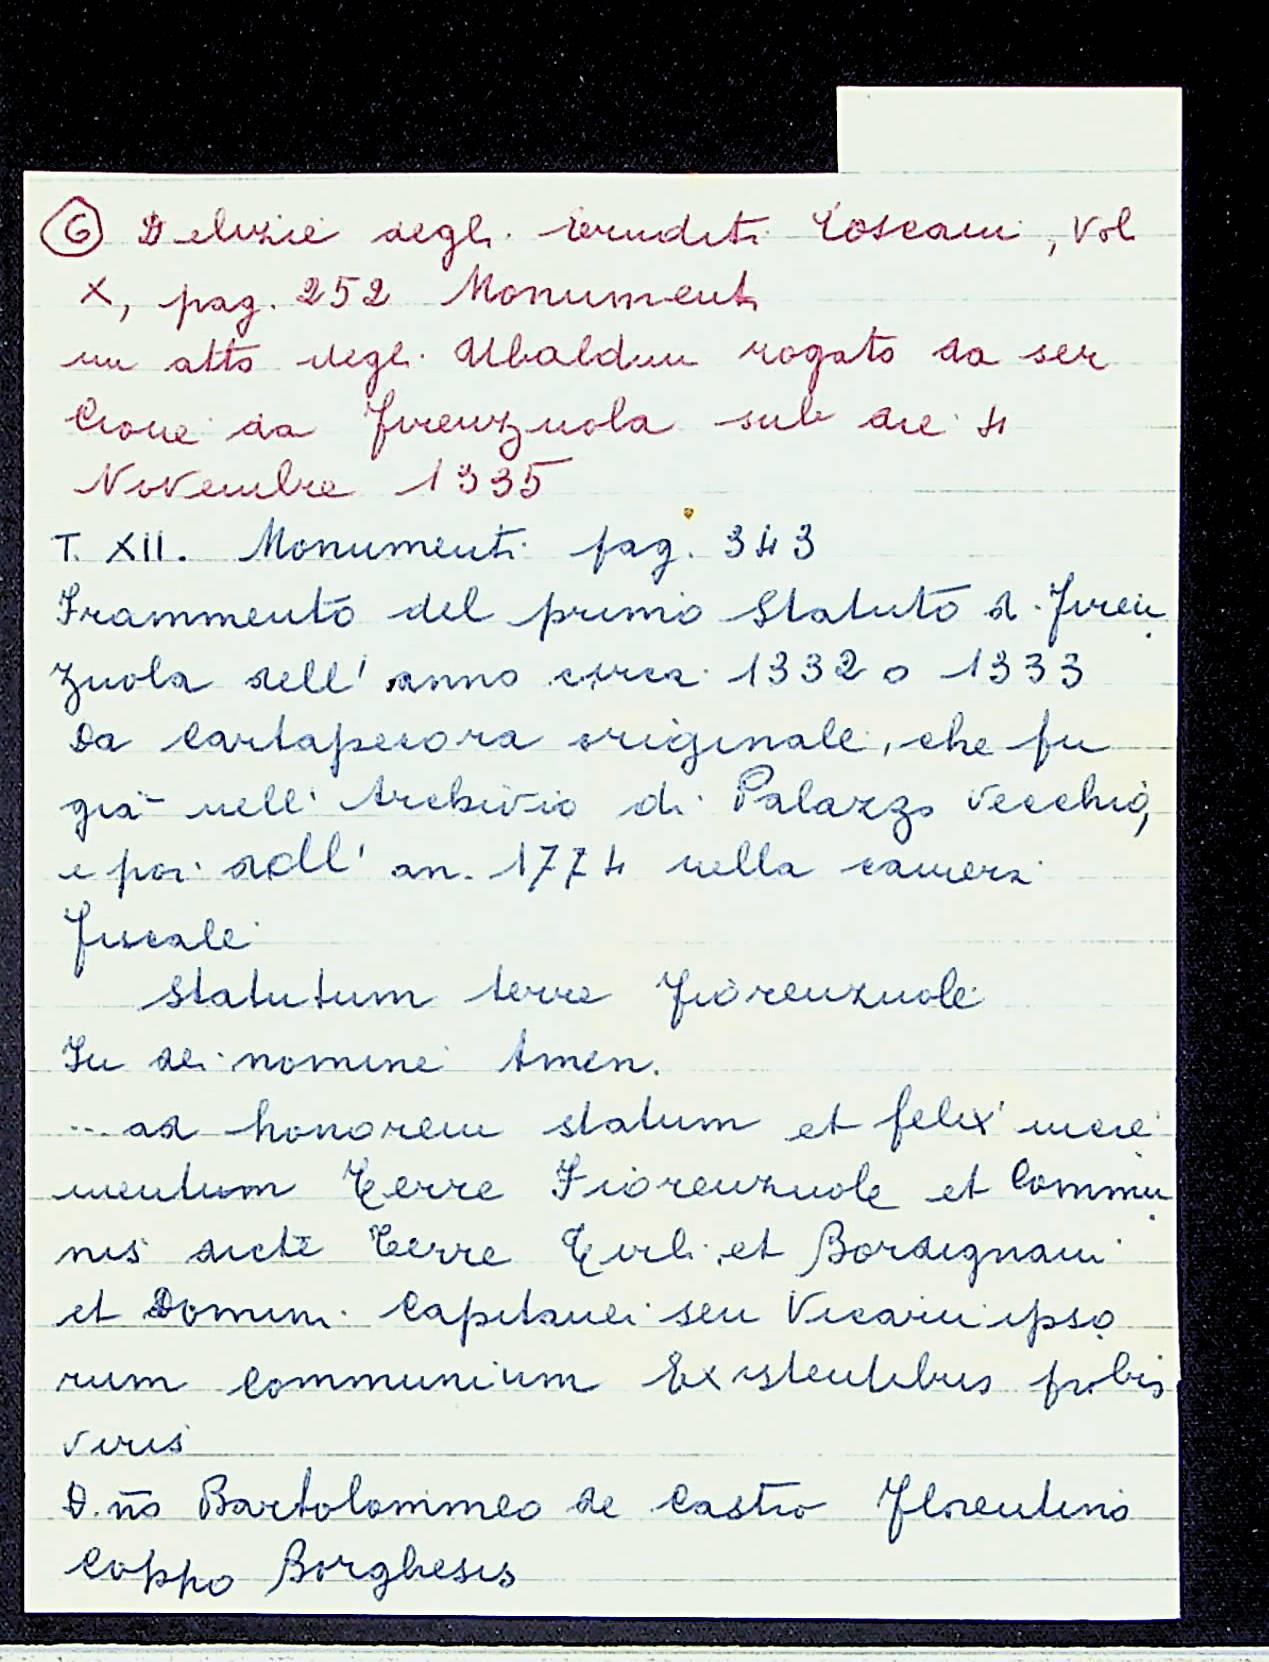 6 Delizie degli Eruditi Toscani, Vol
X, pag. 252 Monumenti
un atto degli Ubaldini rogato da ser
Cione da Firenzuola sub die 4
Novembre 1335
T. XII. Monumenti pag. 343
Frammento del primo Statuto di Firen
zuola dell' anno circa 1332 o 1333
Da Cartapecora originale, che fu
già nell' Archivio di Palazzo Vecchio,
e poi dall' an. 1774 nella camera
fiscale
Statutum terre Fiorenzuole
In dei nomine Amen.
... ad honorem statum et felix incre
mentum Terre Fiorenzuole et Commu
nis dicte Terre Tirli et Bordignani
et Domini Capitanei seu Vicarii ipso
rum communium Existentibus probis
viris
D.no Bartolommeo de Castro Florentino
Coppo Borghesis